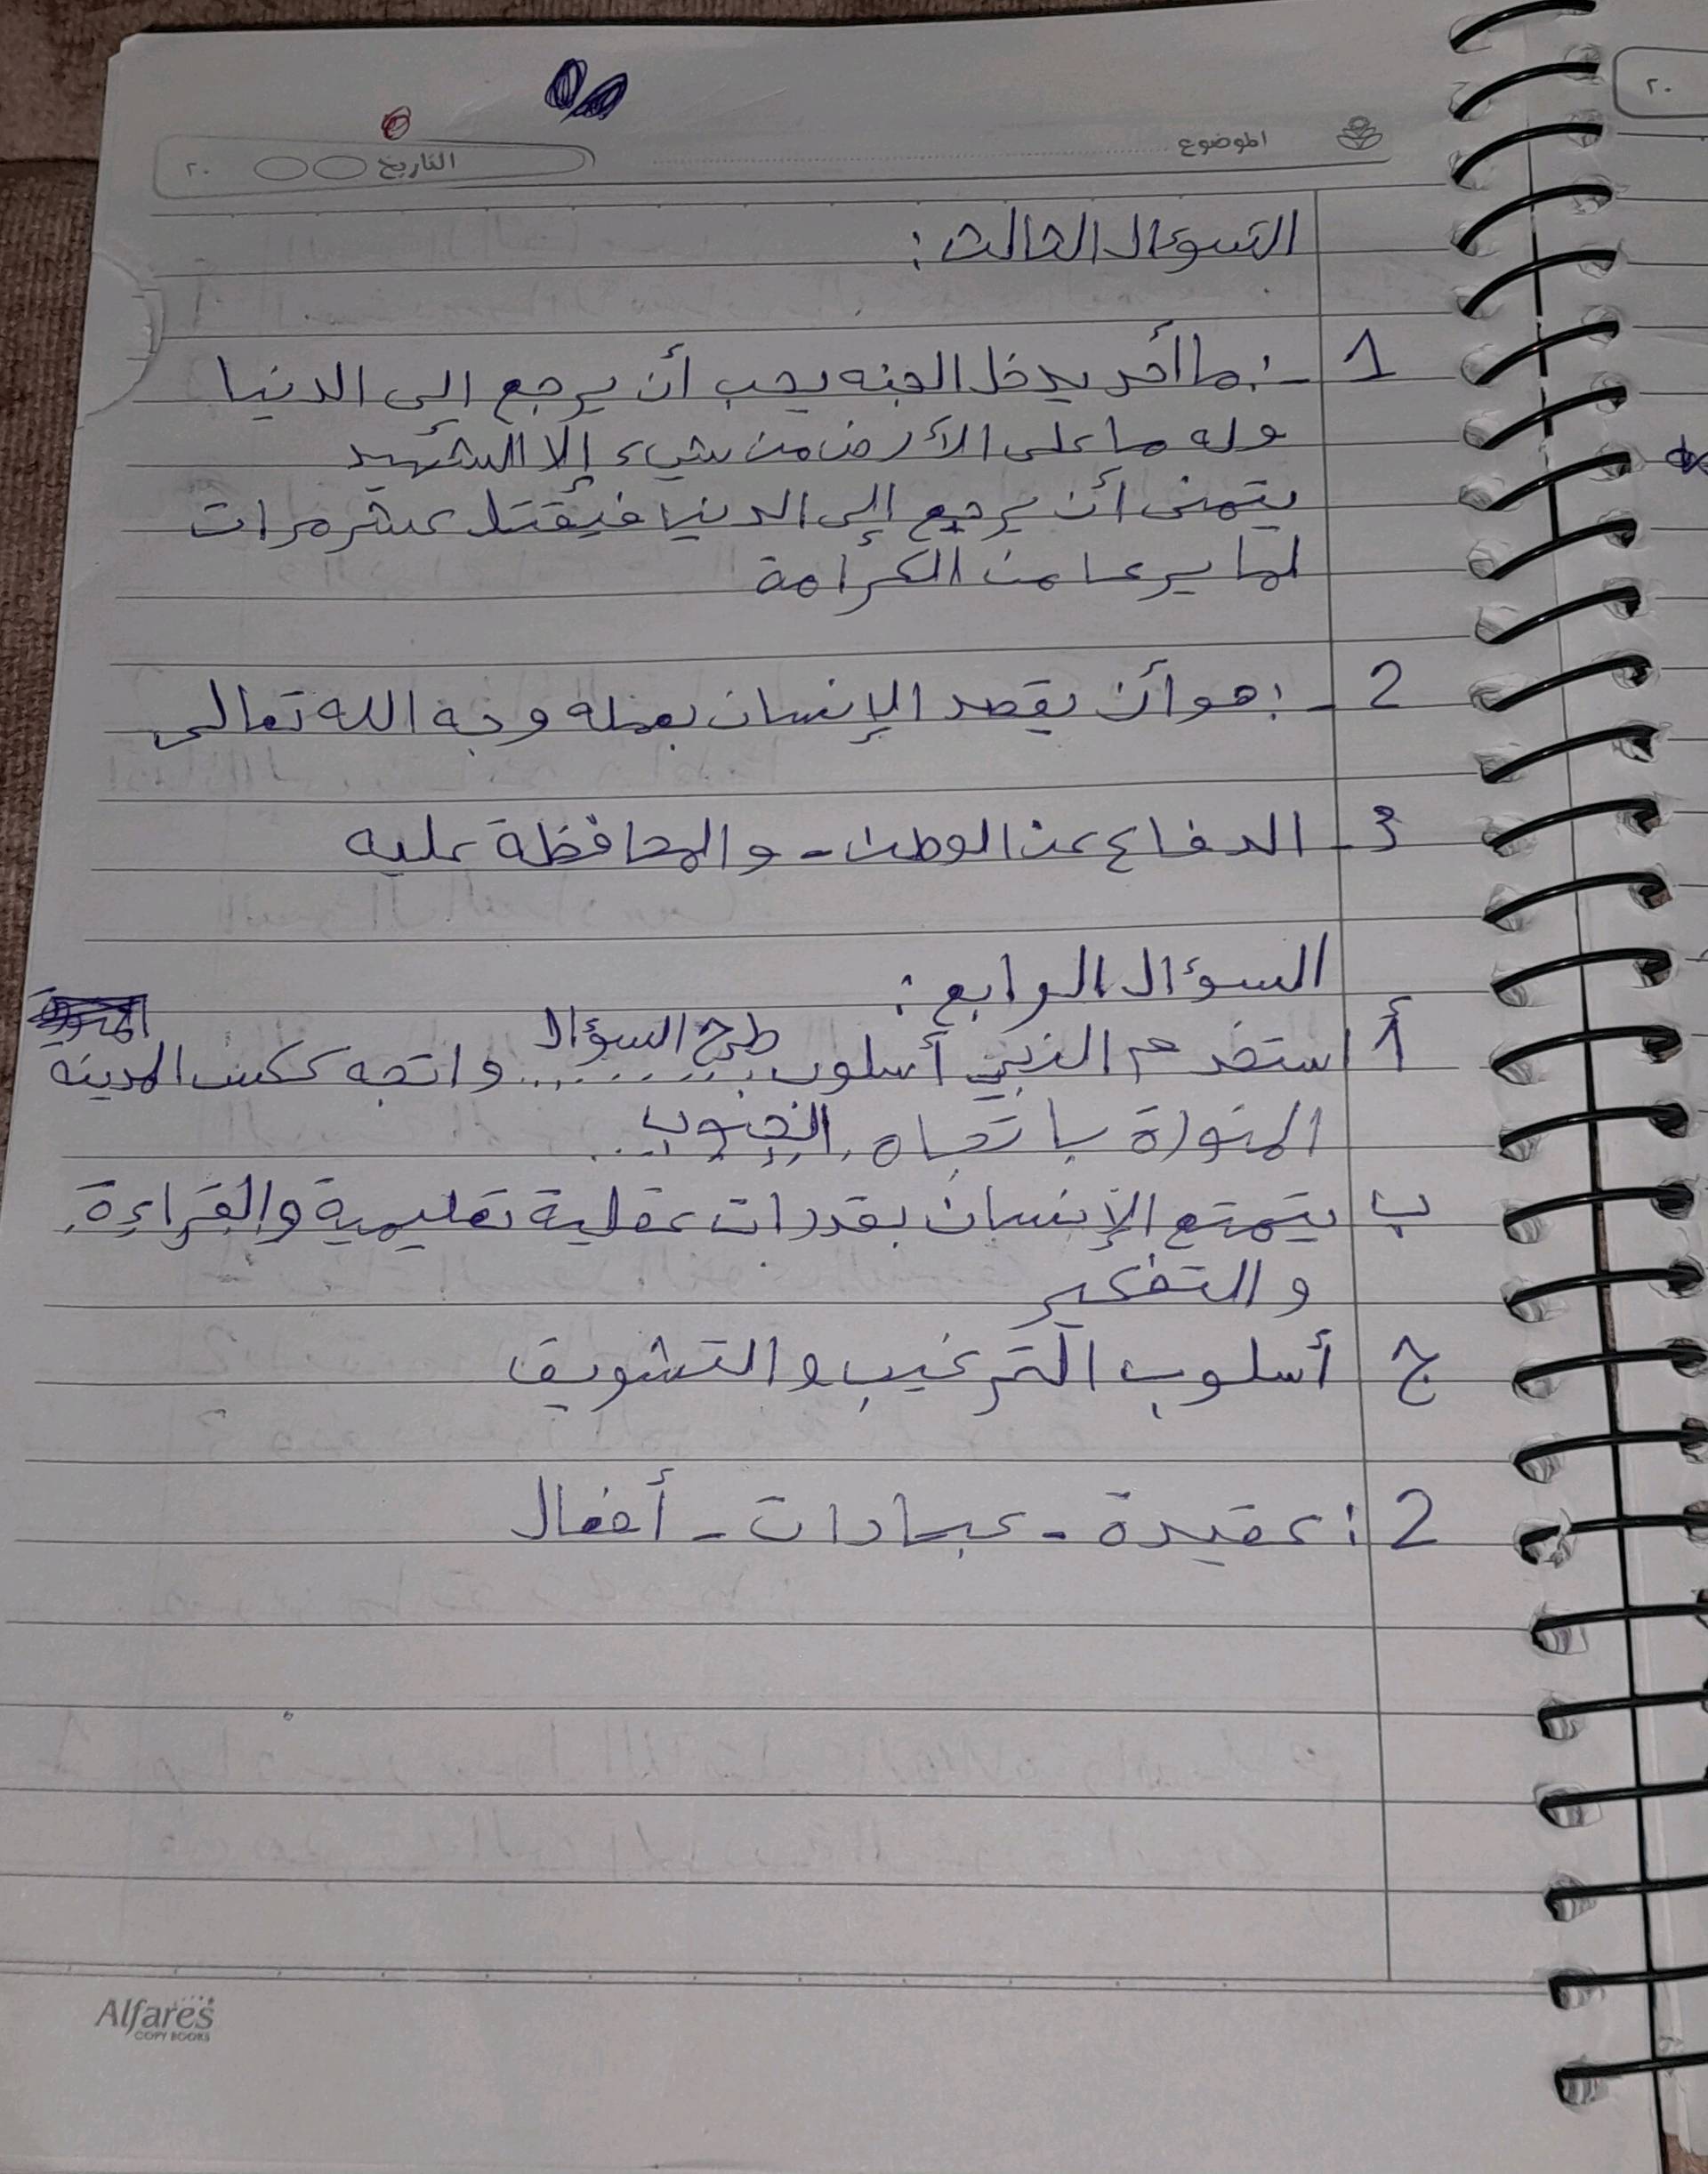 الموضوع
التاريخ ٢٠
السؤال الثالث :
1 - : ما أحد يدخل الجنه يحب أن يرجع إلى الدنيا
وله ما على الأرض من شيء إلا الشهيد
يتمنى أن يرجع إلى الدنيا فيقتل عشر مرات
لما يرعا من الكرامة
2 - : هو أن يقصد الإنسان بعمله وجه الله تعالى
3 - الدفاع عن الوطن - والمحافظة عليه
السؤال الرابع :
أ استخدم النبي أسلوب طرح السؤال واتجه عكس المدينه
المنورة باتجاه الجنوب
ب يتمتع الإنسان بقدرات عقلية تعليمية والقراءة
والتفكير
ج أسلوب الترغيب والتشويق
2 : عقيدة - عبادات - أفعال
Alfares
COPY BOOKS
٢٠